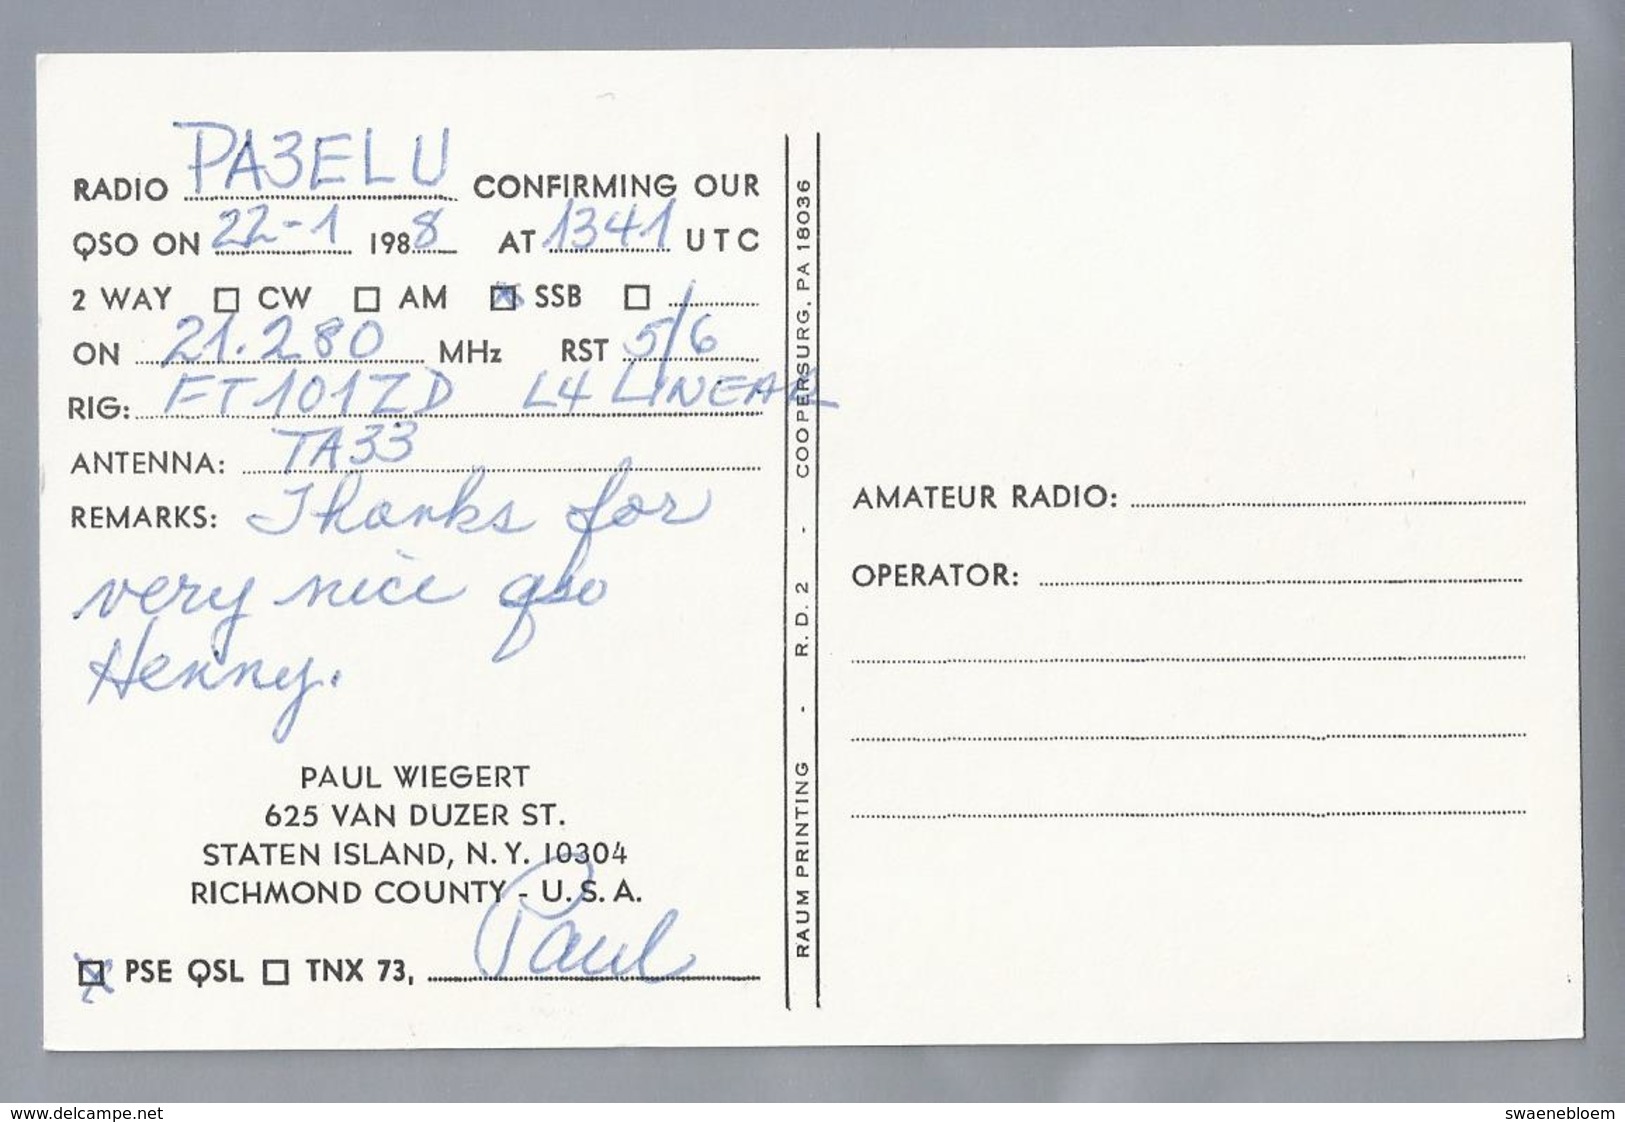 RADIO PA3ELU CONFIRMING OUR
QSO ON 22-1 1988 AT 1341 UTC
2 WAY ☐ CW ☐ AM ☒ SSB ☐
ON 21.280 MHz RST 5/6
RIG: FT101ZD L4 LINEAR
ANTENNA: TA33
REMARKS: Thanks for
very nice qso
Henny.
PAUL WIEGERT
625 VAN DUZER ST.
STATEN ISLAND, N.Y. 10304
RICHMOND COUNTY - U.S.A.
☒ PSE QSL ☐ TNX 73, Paul
RAUM PRINTING - R.D.2 - COOPERSURG, PA 18036
AMATEUR RADIO:
OPERATOR:
www.delcampe.net
swaenebloem